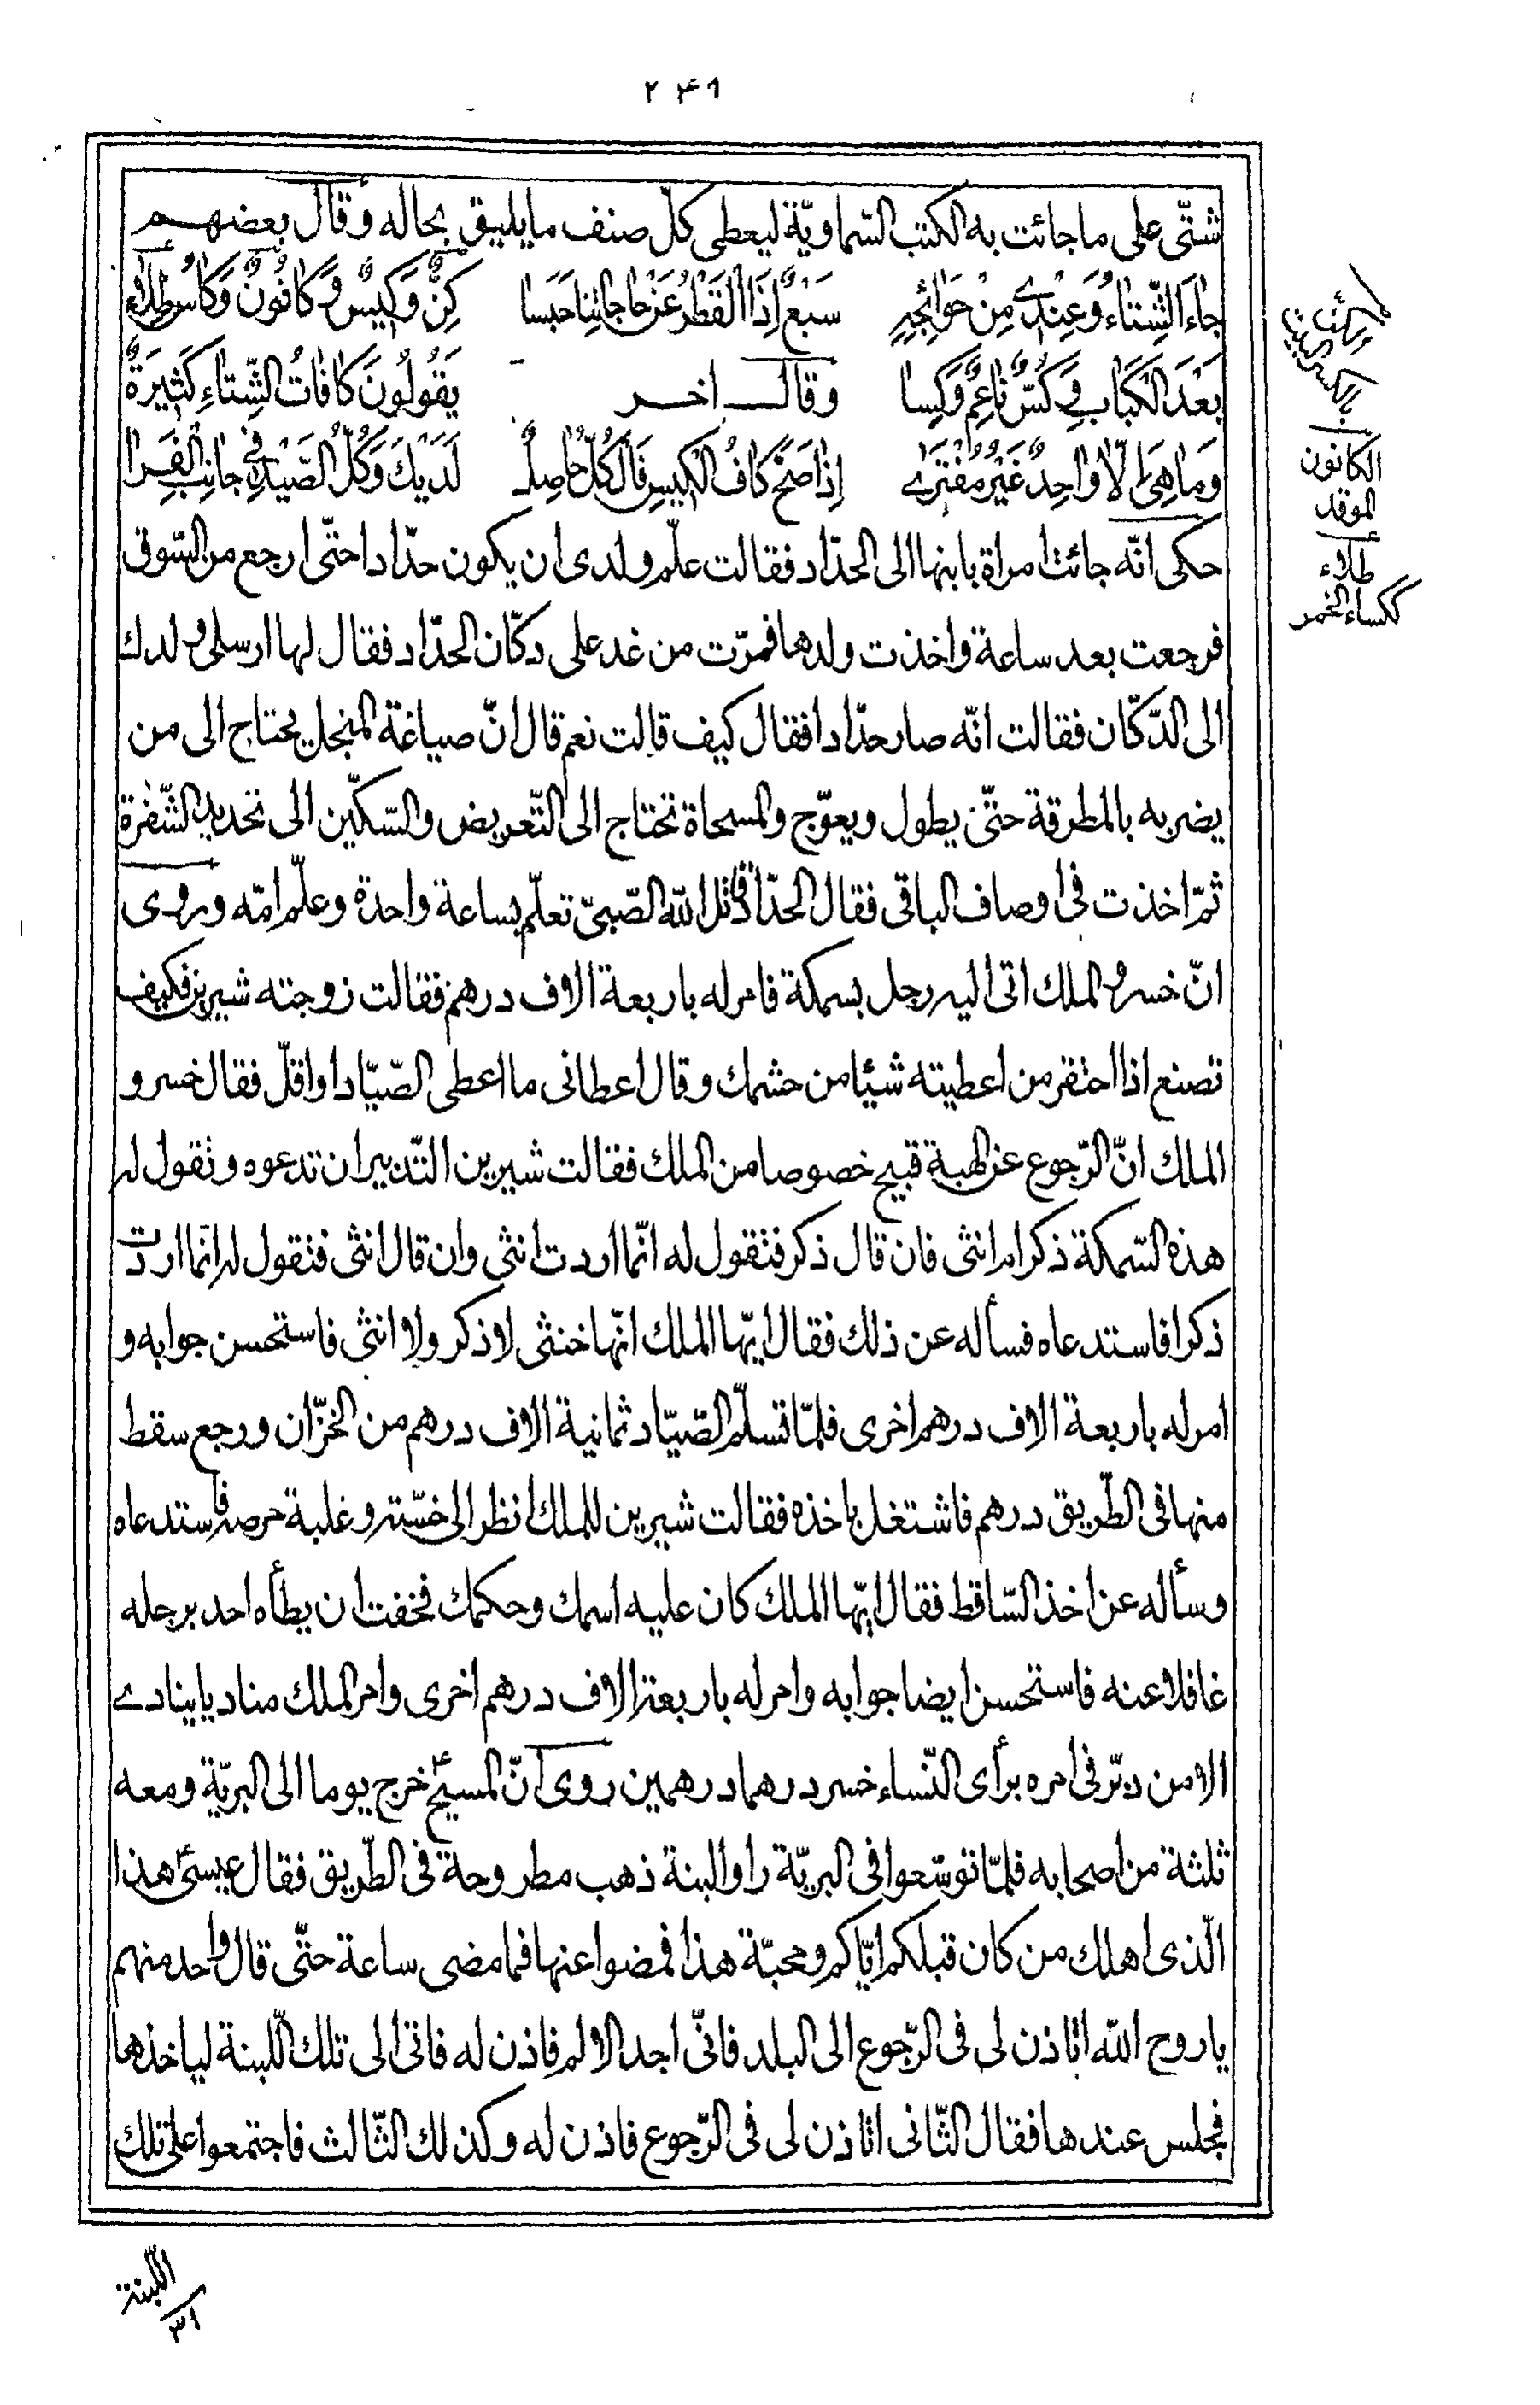 ۲۴۱
شتّى على ما جائت به الكتب السّماويّة ليعطى كلّ صنف ما يليق بحاله وقال بعضهم
جَاءَ الشِّتَاءُ وَعِنْدِي مِنْ حَوَائِجِهِ سَبْعٌ اِذَا الْقَطْرُ عَنْ حَاجَاتِنَا حَبَسَا كِنٌّ وَكِيسٌ وَكَانُونٌ وَكَاسُ طِلَاءٍ
بَعْدَ الْكَبَابِ وَكُسٌّ نَاعِمٌ وَكِسَا وقال اخر يَقُولُونَ كَافَاتُ الشِّتَاءِ كَثِيرَةٌ
وَمَا هِيَ اِلَّا وَاحِدٌ غَيْرُ مُفْتَرَى اِذَا صَحَّ كَافُ الْكِيسِ فَالْكُلُّ حَاصِلٌ لَدَيْكَ وَكُلُّ الصَّيْدِ فِي جَانِبِ الْفَرَا
حكى انّه جائت امراة بابنها الى الحدّاد فقالت علّم ولدى ان يكون حدّادا حتّى ارجع من السّوق
فرجعت بعد ساعة واخذت ولدها فمرّت من غد على دكّان الحدّاد فقال لها ارسلى ولدك
الى الدّكّان فقالت انّه صار حدّادا فقال كيف قالت نعم قال انّ صياغة المنجل يحتاج الى من
يضربه بالمطرقة حتّى يطول ويعوّج والمسحاة تحتاج الى التّعريض والسّكّين الى تحديد الشّفرة
ثمّ اخذت فى اوصاف الباقى فقال الحدّاد قاتل الله الصّبىّ تعلّم بساعة واحدة وعلّم امّه وروى
انّ خسرو الملك اتى اليه رجل بسمكة فامر له باربعة الاف درهم فقالت زوجته شيرين فكيف
تصنع اذا احتقر من اعطيته شيئا من حشمك وقال اعطانى ما اعطى الصّيّاد او اقلّ فقال خسرو
الملك انّ الرّجوع عن الهبة قبيح خصوصا من الملك فقالت شيرين التّدبير ان تدعوه وتقول له
هذه السّمكة ذكر ام انثى فان قال ذكر فتقول له انّما اردت انثى وان قال انثى فتقول له انّما اردت
ذكرا فاستدعاه فسأله عن ذلك فقال ايّها الملك انّها خنثى لا ذكر ولا انثى فاستحسن جوابه و
امر له باربعة الاف درهم اخرى فلمّا تسلّم الصّيّاد ثمانية الاف درهم من الخزّان ورجع سقط
منها فى الطّريق درهم فاشتغل باخذه فقالت شيرين للملك انظر الى خسّته وغلبة حرصه فاستدعاه
وسأله عن اخذ السّاقط فقال ايّها الملك كان عليه اسمك وحكمك فخفت ان يطأه احد برجله
غافلا عنه فاستحسن ايضا جوابه وامر له باربعة الاف درهم اخرى وامر الملك مناديا ينادى
الا من دبّر فى امره برأى النّساء خسر درهما درهمين روى انّ المسيح ع خرج يوما الى البريّة ومعه
ثلثة من اصحابه فلمّا توسّعوا فى البريّة راوا لبنة ذهب مطروحة فى الطّريق فقال عيسى ع هذا
الّذى اهلك من كان قبلكم ايّاكم ومحبّة هذا فمضوا عنها فما مضى ساعة حتّى قال واحد منهم
يا روح الله اتاذن لى فى الرّجوع الى البلد فانّى اجد الالم فاذن له فاتى الى تلك اللّبنة لياخذها
فجلس عندها فقال الثّانى اتاذن لى فى الرّجوع فاذن له وكذلك الثّالث فاجتمعوا على تلك
الكانون
الموقد
طلاء
ككساء الخمر
اللّبنة
۳۱